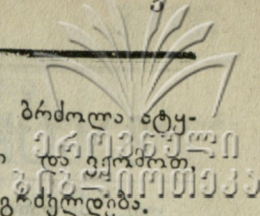 ბრძოლა ატყ-
და ვეჟომოთ,
გრძელდება.
ეროვნული
ბიბლიოთეკა